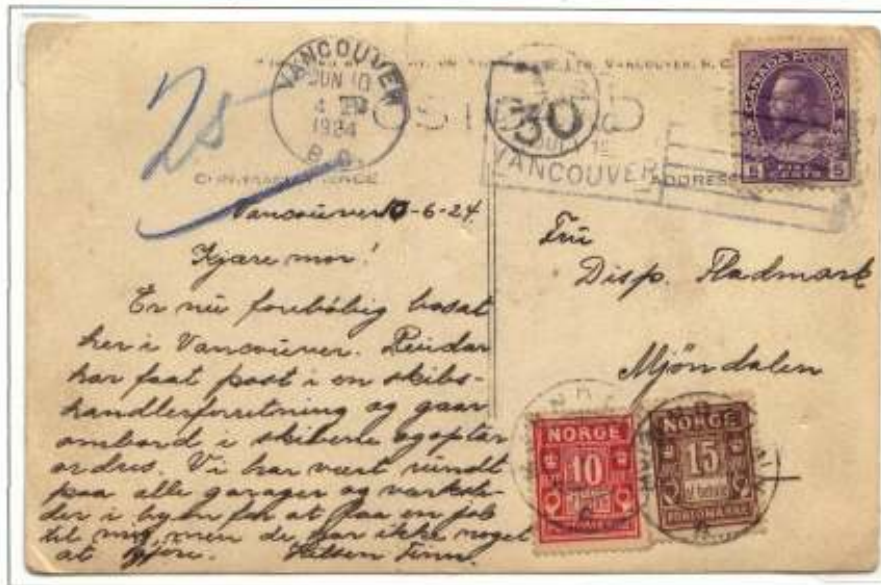 25
VANCOUVER
JUN 10
4 PM
1924
B.C.
VANCOUVER, B.C.
POST CARD
30
VANCOUVER
CANADA POSTAGE
5 FIVE CENTS 5
CORRESPONDENCE
ADDRESS
Vancouver 10-6-24
Kjære mor!
Er nu foreløbig bosat
her i Vancouver. Reidar
har faat post i en skibs-
handlerforretning og gaar
ombord i skibene og optar
ordres. Vi har vært rundt
paa alle garager og verkste-
der i byen for at faa en job
til mig, men de har ikke noget
at gjøre. Hilsen Finn.
Fru
Disp. Fladmark
Mjöndalen
NORGE
10
NORGE
15
at betale
PORTOMÆRKE